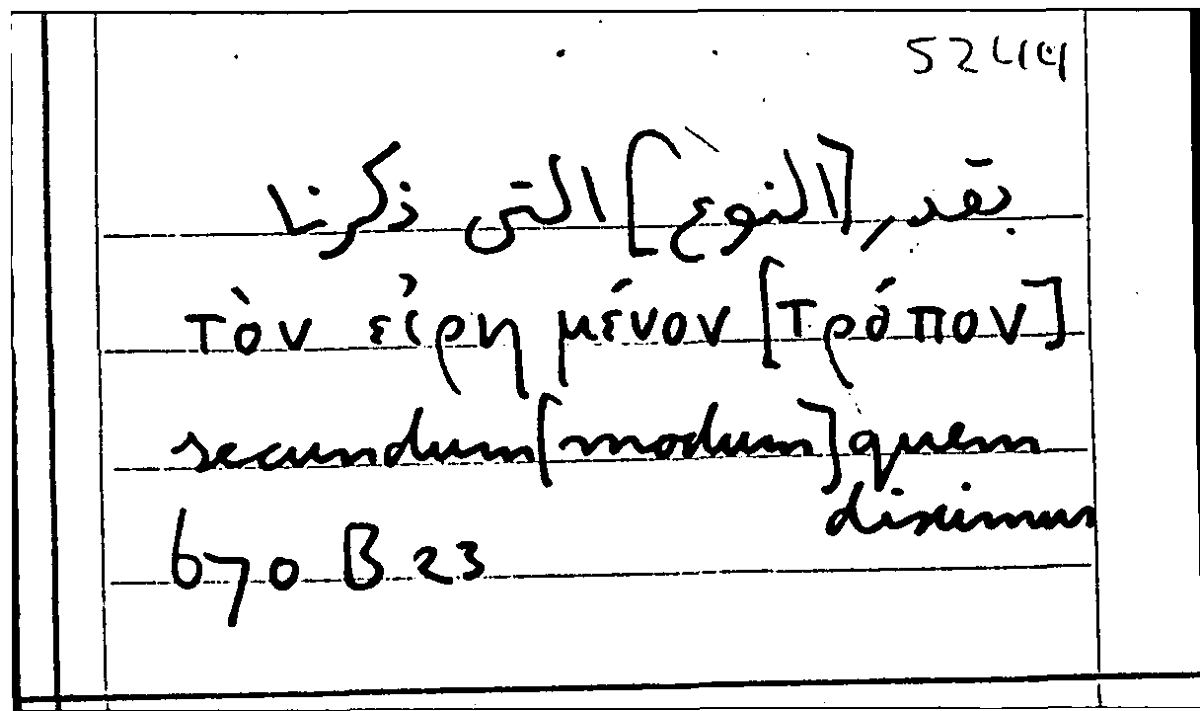 5244
بقدر [النوع] التى ذكرنا
τὸν εἰρημένον [τρόπον]
secundum [modum] quem
diximus
670 B 23